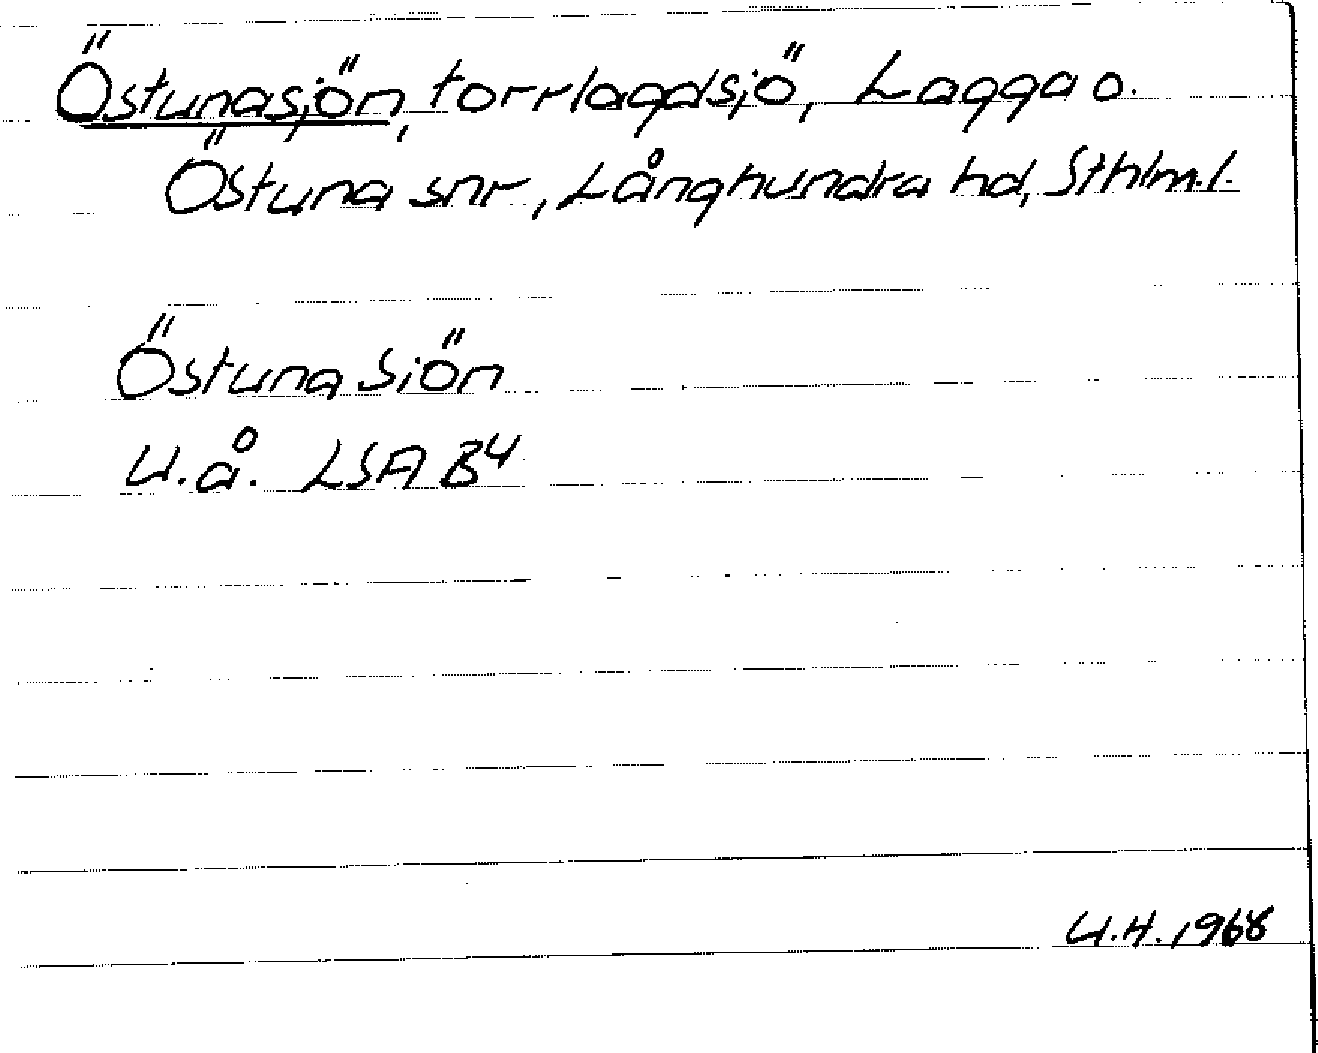 Östunasjön, torrlagd sjö, Lagga o.
Östuna snr, Långhundra hd, Sthlm.l.
Östuna Siön
u.å. LSA B4
U.H. 1968